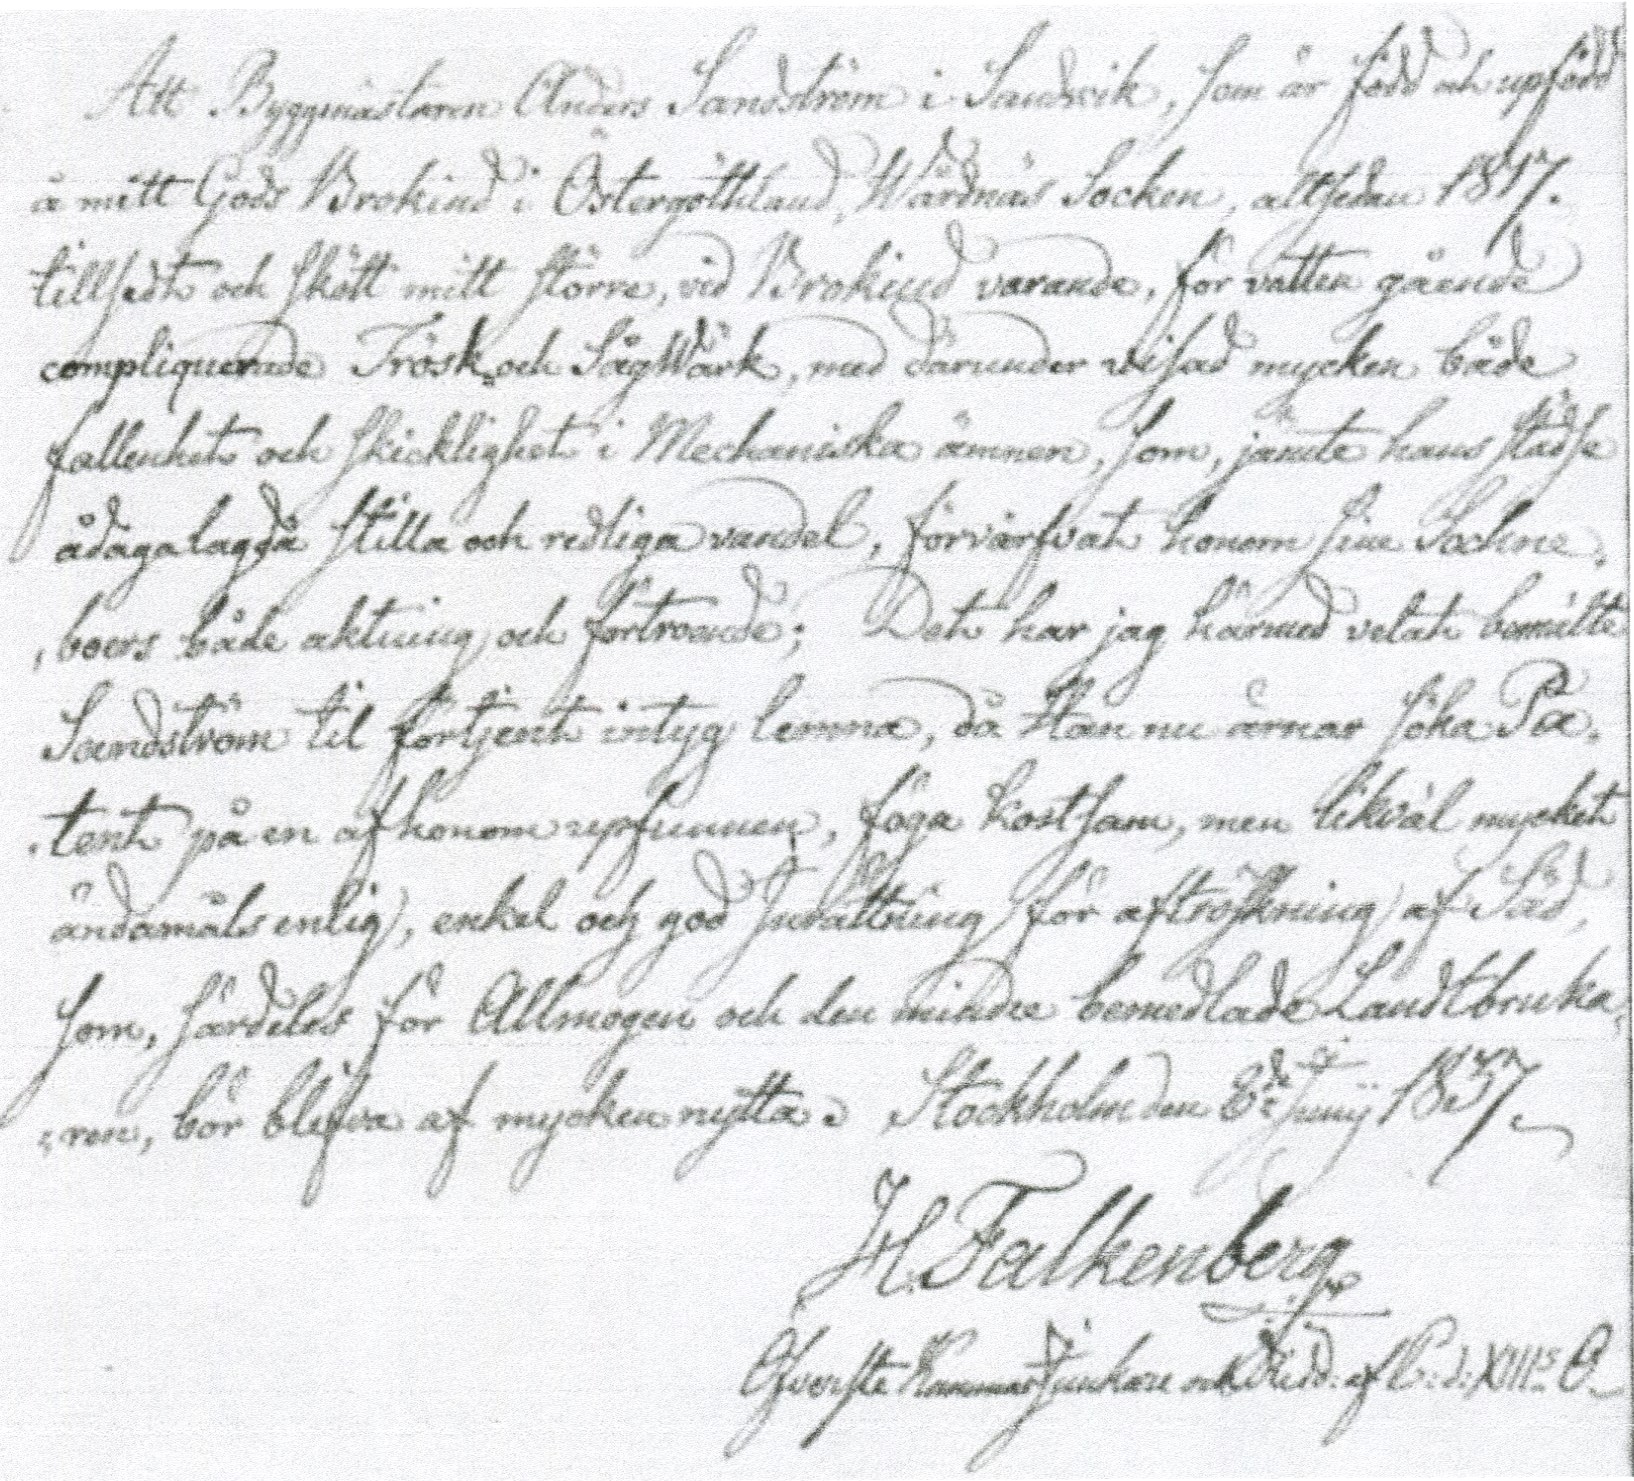 Att Byggmästaren Anders Sandström i Sandvik, som är född och upfödd
å mitt Gods Brokind i Östergöthland, Wårdnäs Socken, altsedan 1817.
tillsedt och skött mitt större, vid Brokind varande, för vatten gående
compliquerade Trösk- och SågWärk, med därunder visad mycken både
fallenhet och skicklighet i Mechaniska ämnen, som, jämte hans städse
ådagalagda stilla och redliga vandel, förvärfvat honom sine Sockne-
boers både aktning och förtroende; Det har jag härmed velat bemälte
Sandström til förtjent intyg lemna, då Han nu ärnar söka Pa-
tent på en af honom upfunnen, föga kostsam, men likväl mycket
ändamåls enlig, enkel och god Inrättning för aftröskning af Säd,
som, särdeles för Allmogen och den mindre bemedlade Landtbruka-
ren, bör blifva af mycken nytta. Stockholm den 8de Junij 1837.
H. Falkenberg
Öfverste Kammarjunkare och Ridd: af C: d: XIIIs O.